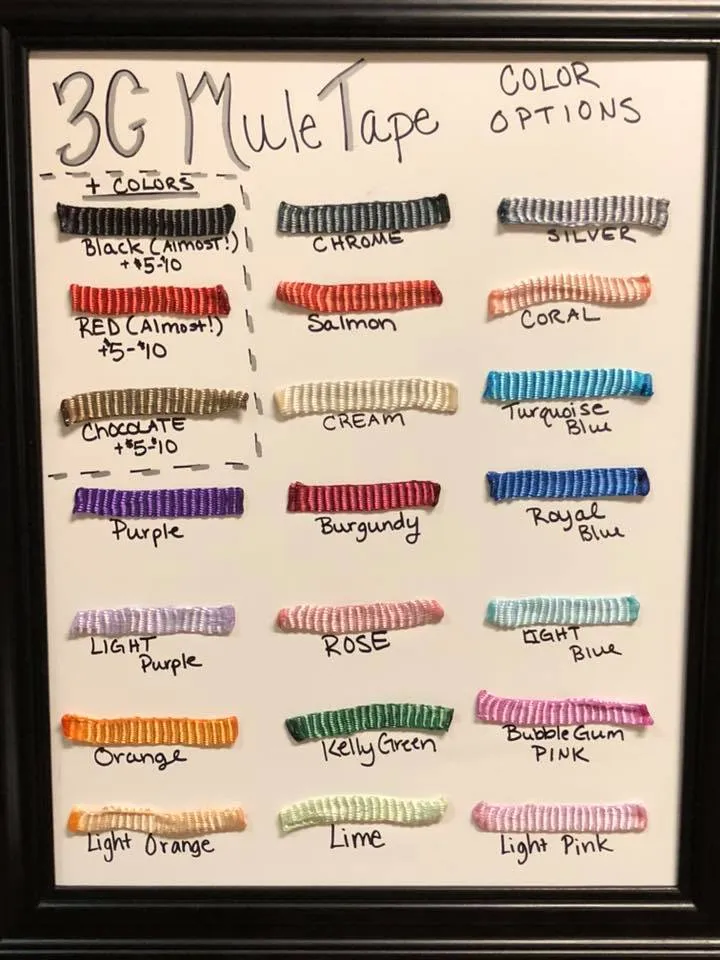 3G Mule Tape
COLOR
OPTIONS
+ COLORS
Black (Almost!)
+$5-10
RED (Almost!)
+$5-$10
CHOCOLATE
+$5-$10
CHROME
SILVER
Salmon
CORAL
CREAM
Turquoise
Blue
Purple
Burgundy
Royal
Blue
LIGHT
Purple
ROSE
LIGHT
Blue
Orange
Kelly Green
Bubble Gum
PINK
Light Orange
Lime
Light Pink